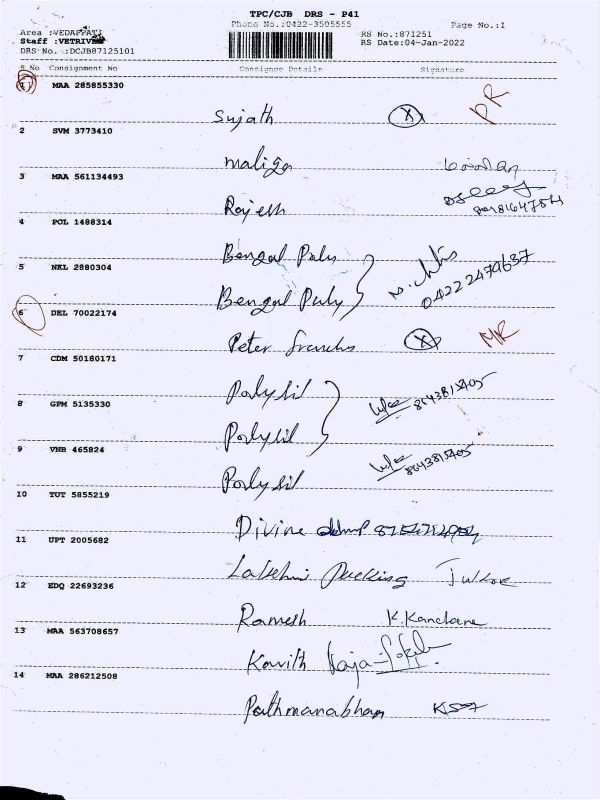 TPC/CJB DRS - P41
Phone No.:0422-3505555
Page No.:1
Area :VEDAPPATI
Staff :VETRIVE
DRS No. :DCJB87125101
RS No.:871251
RS Date:04-Jan-2022
S No Consignment No Consignee Details Signature
1 MAA 285855330
Sujath X PR
2 SVM 3773410
maliga
3 MAA 561134493
Rajesh
4 POL 1488314
Bengal Paly
5 NKL 2880304
Bengal Paly 04222479637
6 DEL 70022174
Peter Franchs X MR
7 CDM 50180171
Polysil
8 GPM 5135330
Polysil
9 VNB 465824
Polysil
10 TUT 5855219
Divine
11 UPT 2005682
Lakshmi Packing
12 EDQ 22693236
Ramesh K.Kanchana
13 MAA 563708657
Kavith
14 MAA 286212508
Pathmanabhan